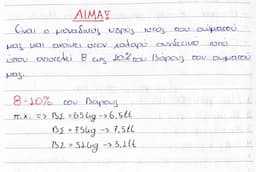 ΑΙΜΑ
Είναι ο μοναδικός υγρός ιστός του σώματος
μας και ανήκει στον χαλαρό συνδετικό ιστό
όπου αποτελεί 8 εως 10% του βάρους του σώματος
μας.
8-10% του βάρους
π.χ. => ΒΣ = 65kg -> 6,5lt
ΒΣ = 75kg -> 7,5lt
ΒΣ = 52kg -> 5,2lt